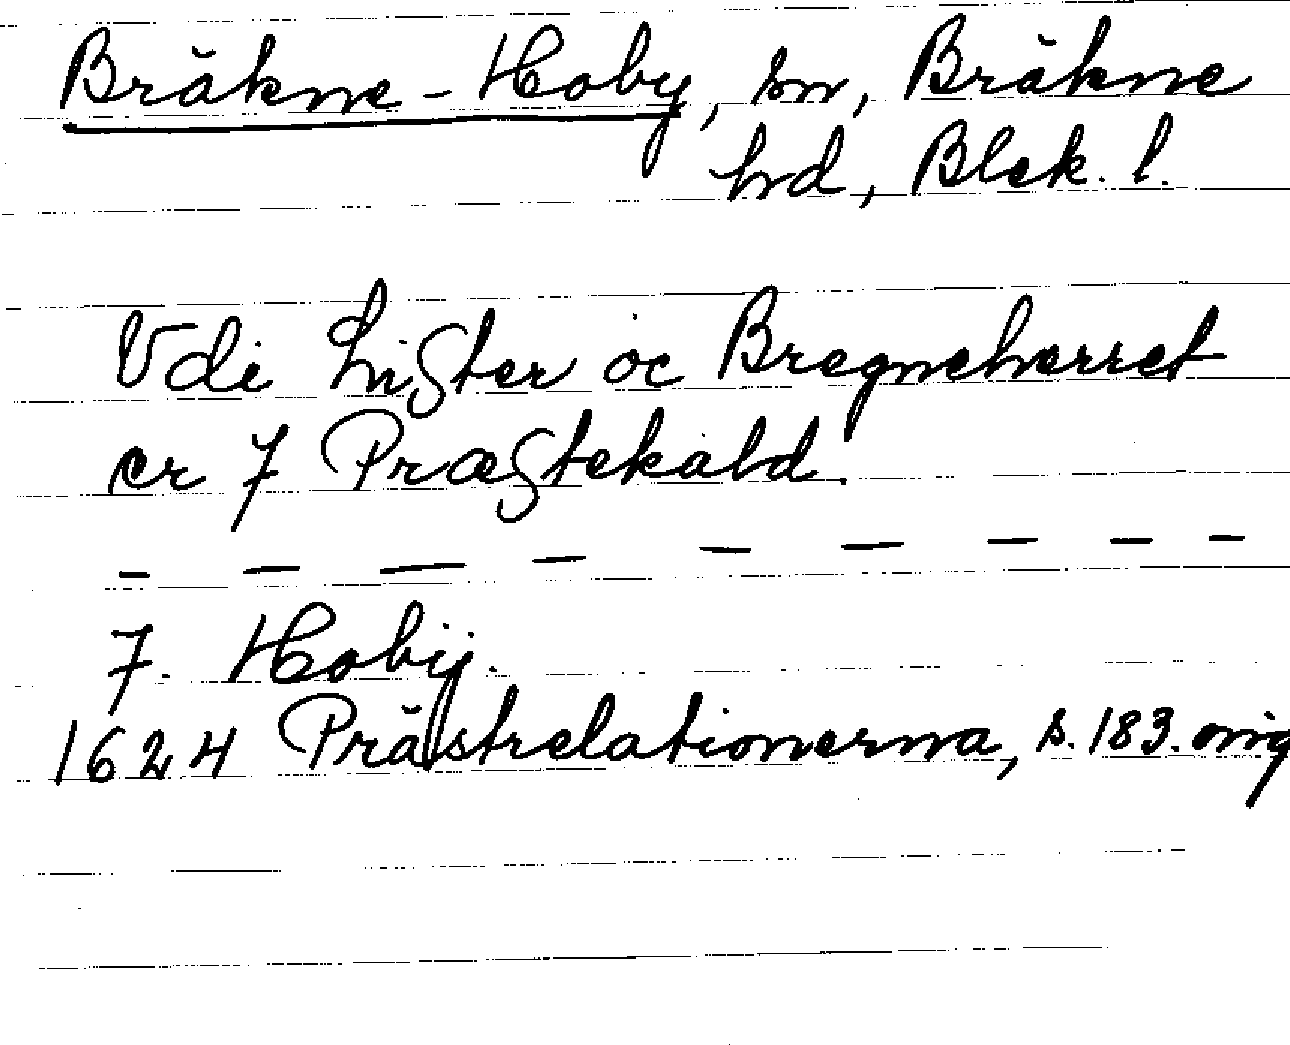 Bräkne-Hoby, sn, Bräkne
hd, Blek. l.
Vdi Lister oc Bregneherret
er 7 Præstekald.
— — — — — — — — —
7. Hobÿ.
1624 Prästrelationerna, s. 183. orig